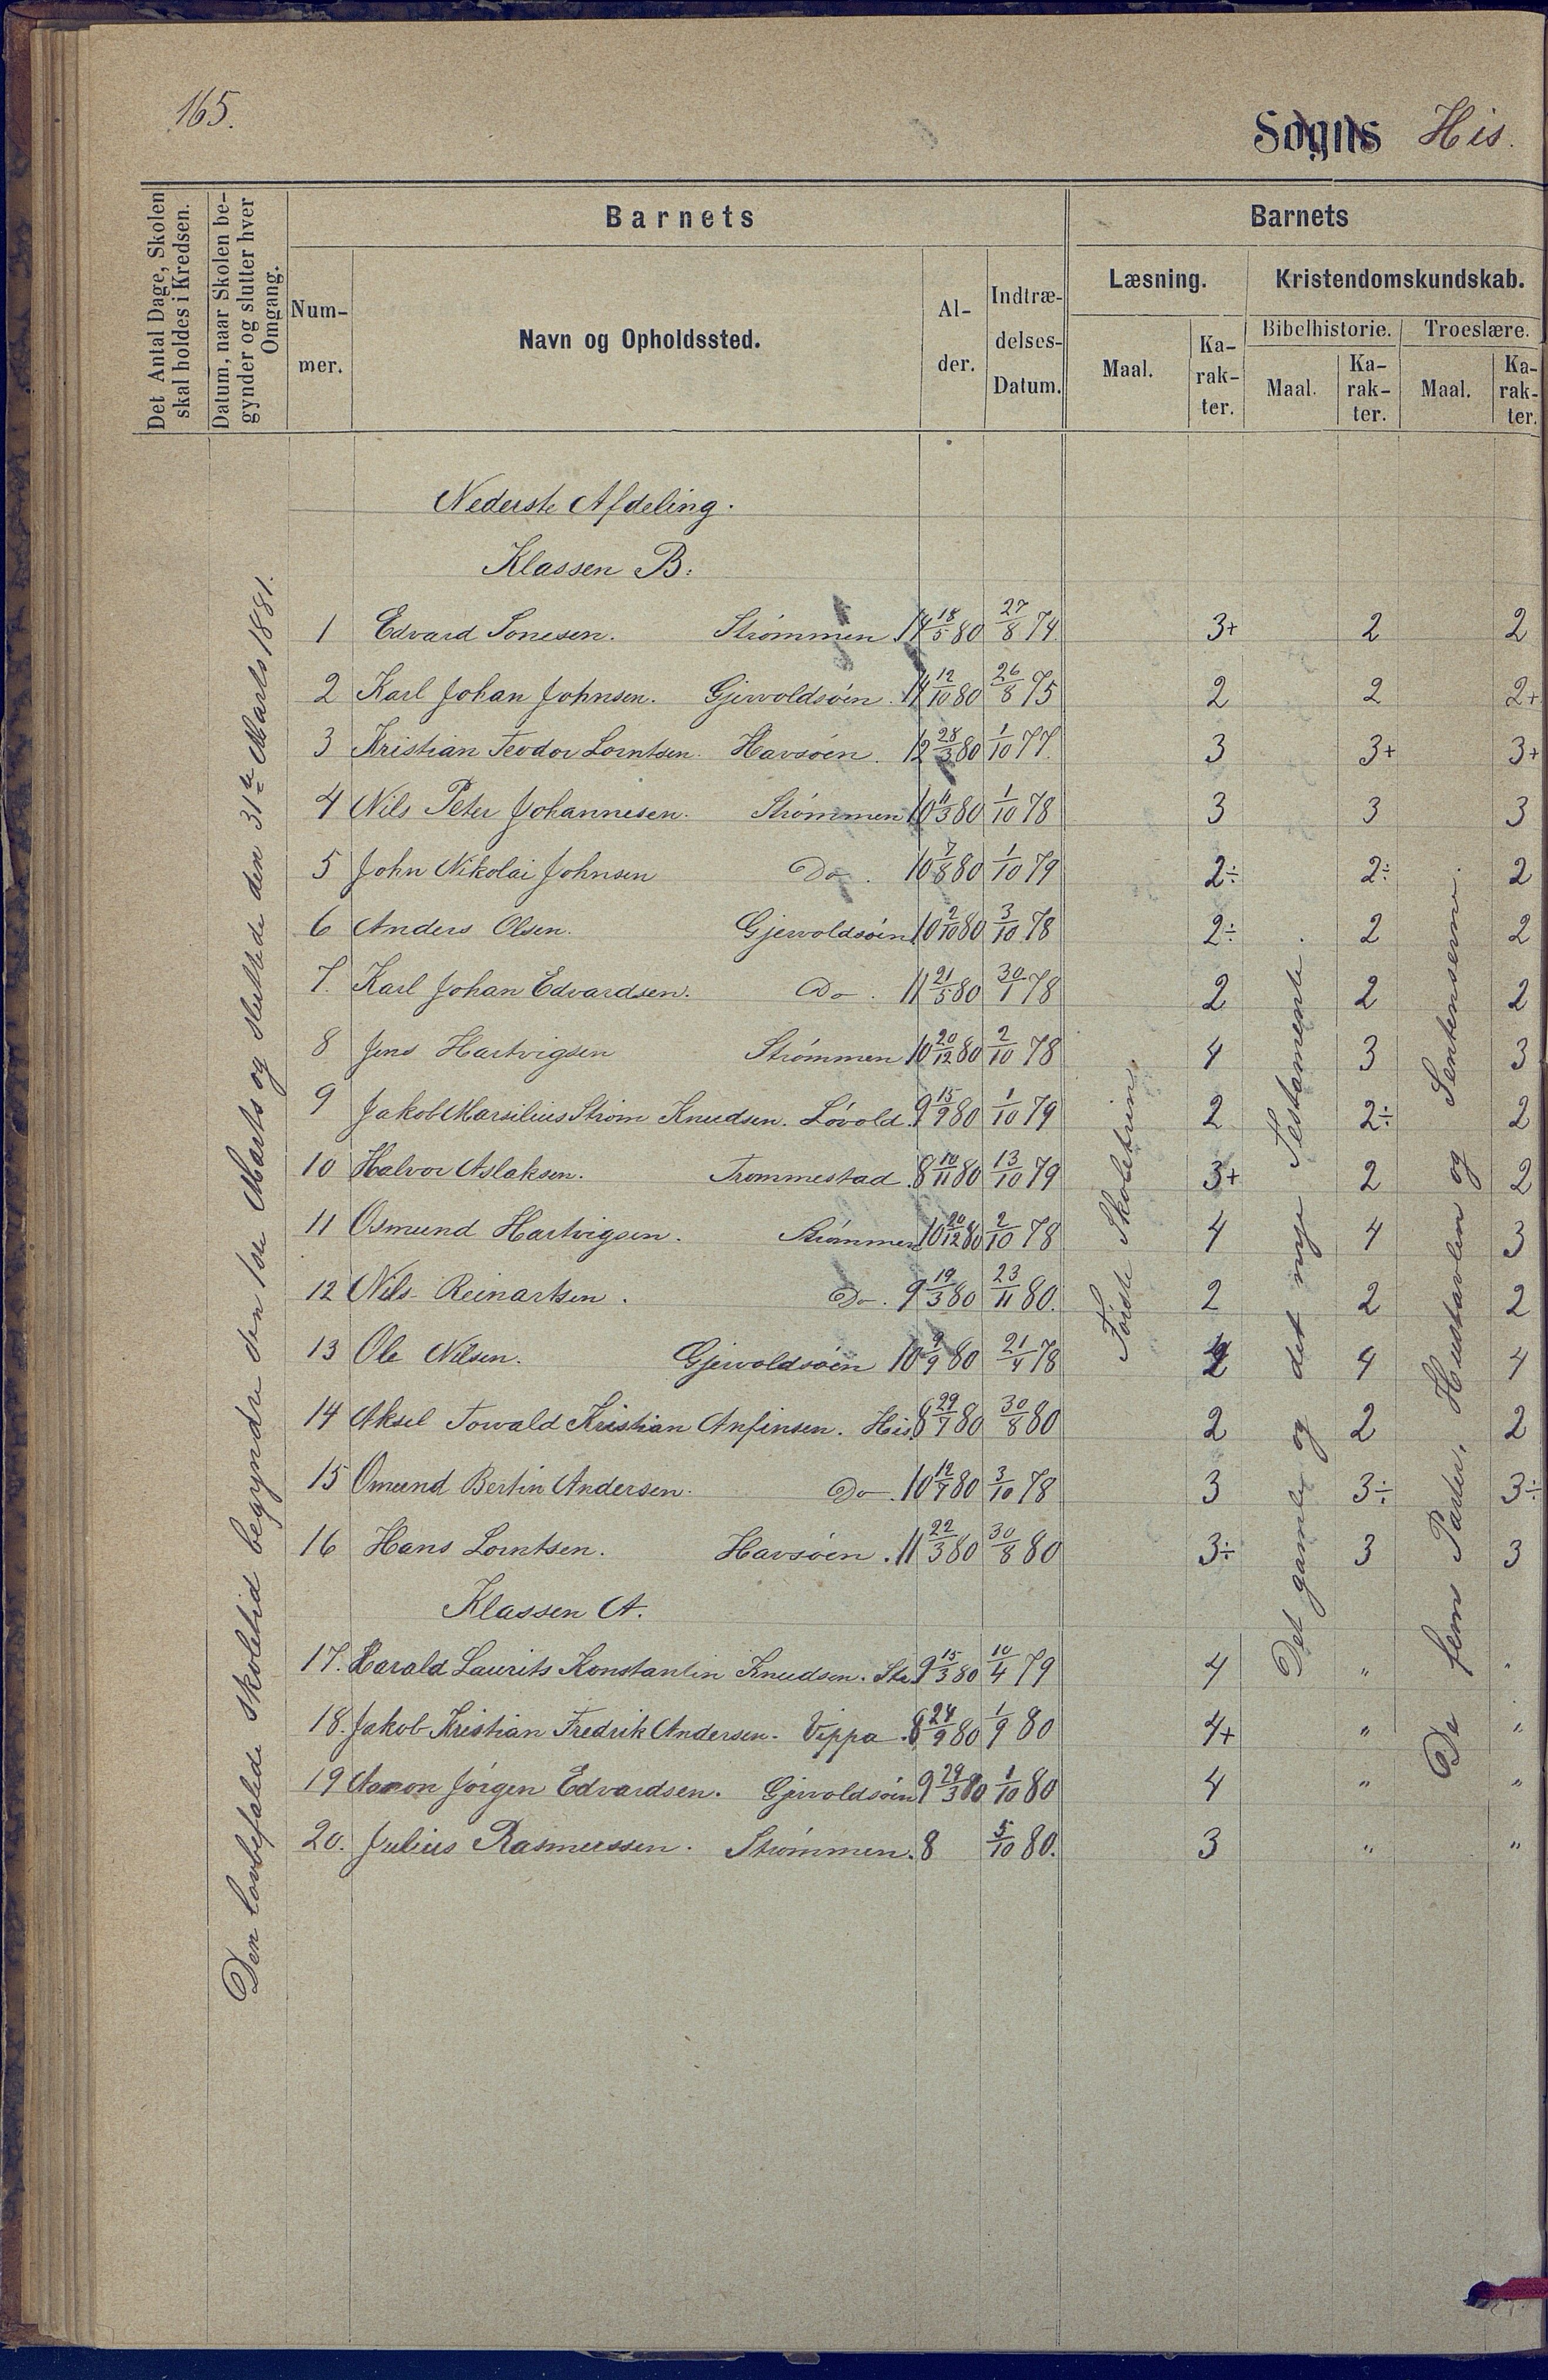 165.
Sogns His.
Det Antal Dage, Skolen skal holdes i Kredsen.
Datum, naar Skolen begynder og slutter hver Omgang.
Barnets
Barnets
Nummer.
Navn og Opholdssted.
Alder.
Indtrædelses-Datum.
Læsning.
Kristendomskundskab.
Bibelhistorie.
Troeslære.
Maal.
Karakter.
Maal.
Karakter.
Maal.
Karakter.
Den lovbefalede skoletid begyndte den 1ste Marts og sluttede den 31te Marts 1881.
Første Skoletrin
Det gamle og det nye Testamente.
De fem Parter, Hustavlen og Sentenserne.
Nederste Afdeling.
Klassen B:
1 Edvard Tonesen. Strømmen. 14 18/5 80 27/8 74. 3+ 2 2
2 Karl Johan Johnsen. Gjervoldsøen. 14 12/10 80 26/8 75 2 2 2+
3 Kristian Teodor Lorntsen. Havsøen. 12 28/3 80 1/10 77. 3 3+ 3+
4 Nils Peter Johannesen. Strømmen 10 11/3 80 1/10 78 3 3 3
5 John Nikolai Johnsen Do. 10 7/8 80 1/10 79 2÷ 2÷ 2
6 Anders Olsen. Gjervoldsøen 10 2/10 80 3/10 78 2÷ 2 2
7. Karl Johan Edvardsen. Do. 11 21/5 80 30/1 78 2 2 2
8 Jens Hartvigsen Strømmen 10 20/12 80 2/10 78 4 3 3
9 Jakob Marsilius Strøm Knudsen. Løvold. 9 15/9 80 1/10 79 2 2÷ 2
10 Halvor Aslaksen. Trommestad. 8 10/11 80 13/10 79 3+ 2 2
11 Osmund Hartvigsen. Strømmen 10 20/12 80 2/10 78 4 4 3
12 Nils Reinartsen. Do. 9 19/3 80 23/11 80. 2 2 2
13 Ole Nilsen. Gjervoldsøen 10 9/9 80 21/4 78 4 4
14 Aksel Torvald Kristian Anfinsen. His. 8 29/7 80 30/8 80 2 2 2
15 Omund Bertin Andersen. Do. 10 12/7 80 3/10 78 3 3÷ 3÷
16 Hans Lorntsen. Havsøen. 11 22/3 80 30/8 80 3÷ 3 3
Klassen A.
17. Harald Laurits Konstantin Knudsen. Str. 9 15/3 80 10/4 79 4 " "
18. Jakob Kristian Fredrik Andersen. Vippa. 8 24/9 80 1/9 80 4+ " "
19 Aanon Jørgen Edvardsen. Gjervoldsøen 9 29/3 80 1/10 80 4 " "
20. Julius Rasmussen. Strømmen. 8 5/10 80. 3 " "